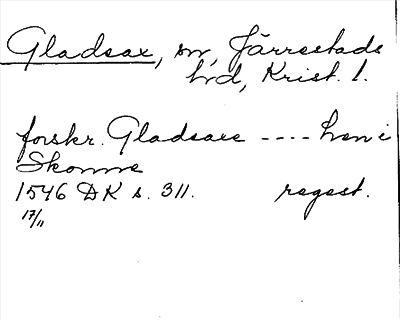 Gladsax, sn, Järrestads
hd, Krist. l.
forskr. Gladsaxe ---- hren i
Skonne
1546 DK s. 311. regest.
17/11